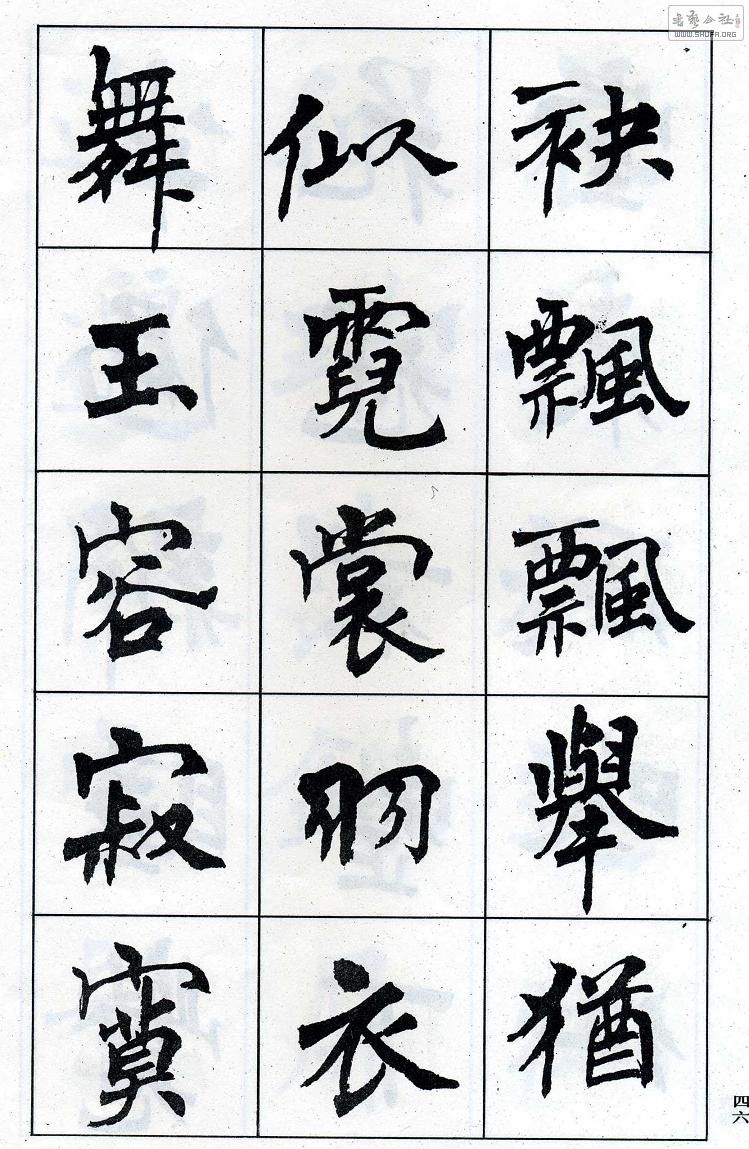 袂飄飄舉猶
似霓裳羽衣
舞玉容寂寞
四六
WWW.SHUFA.ORG